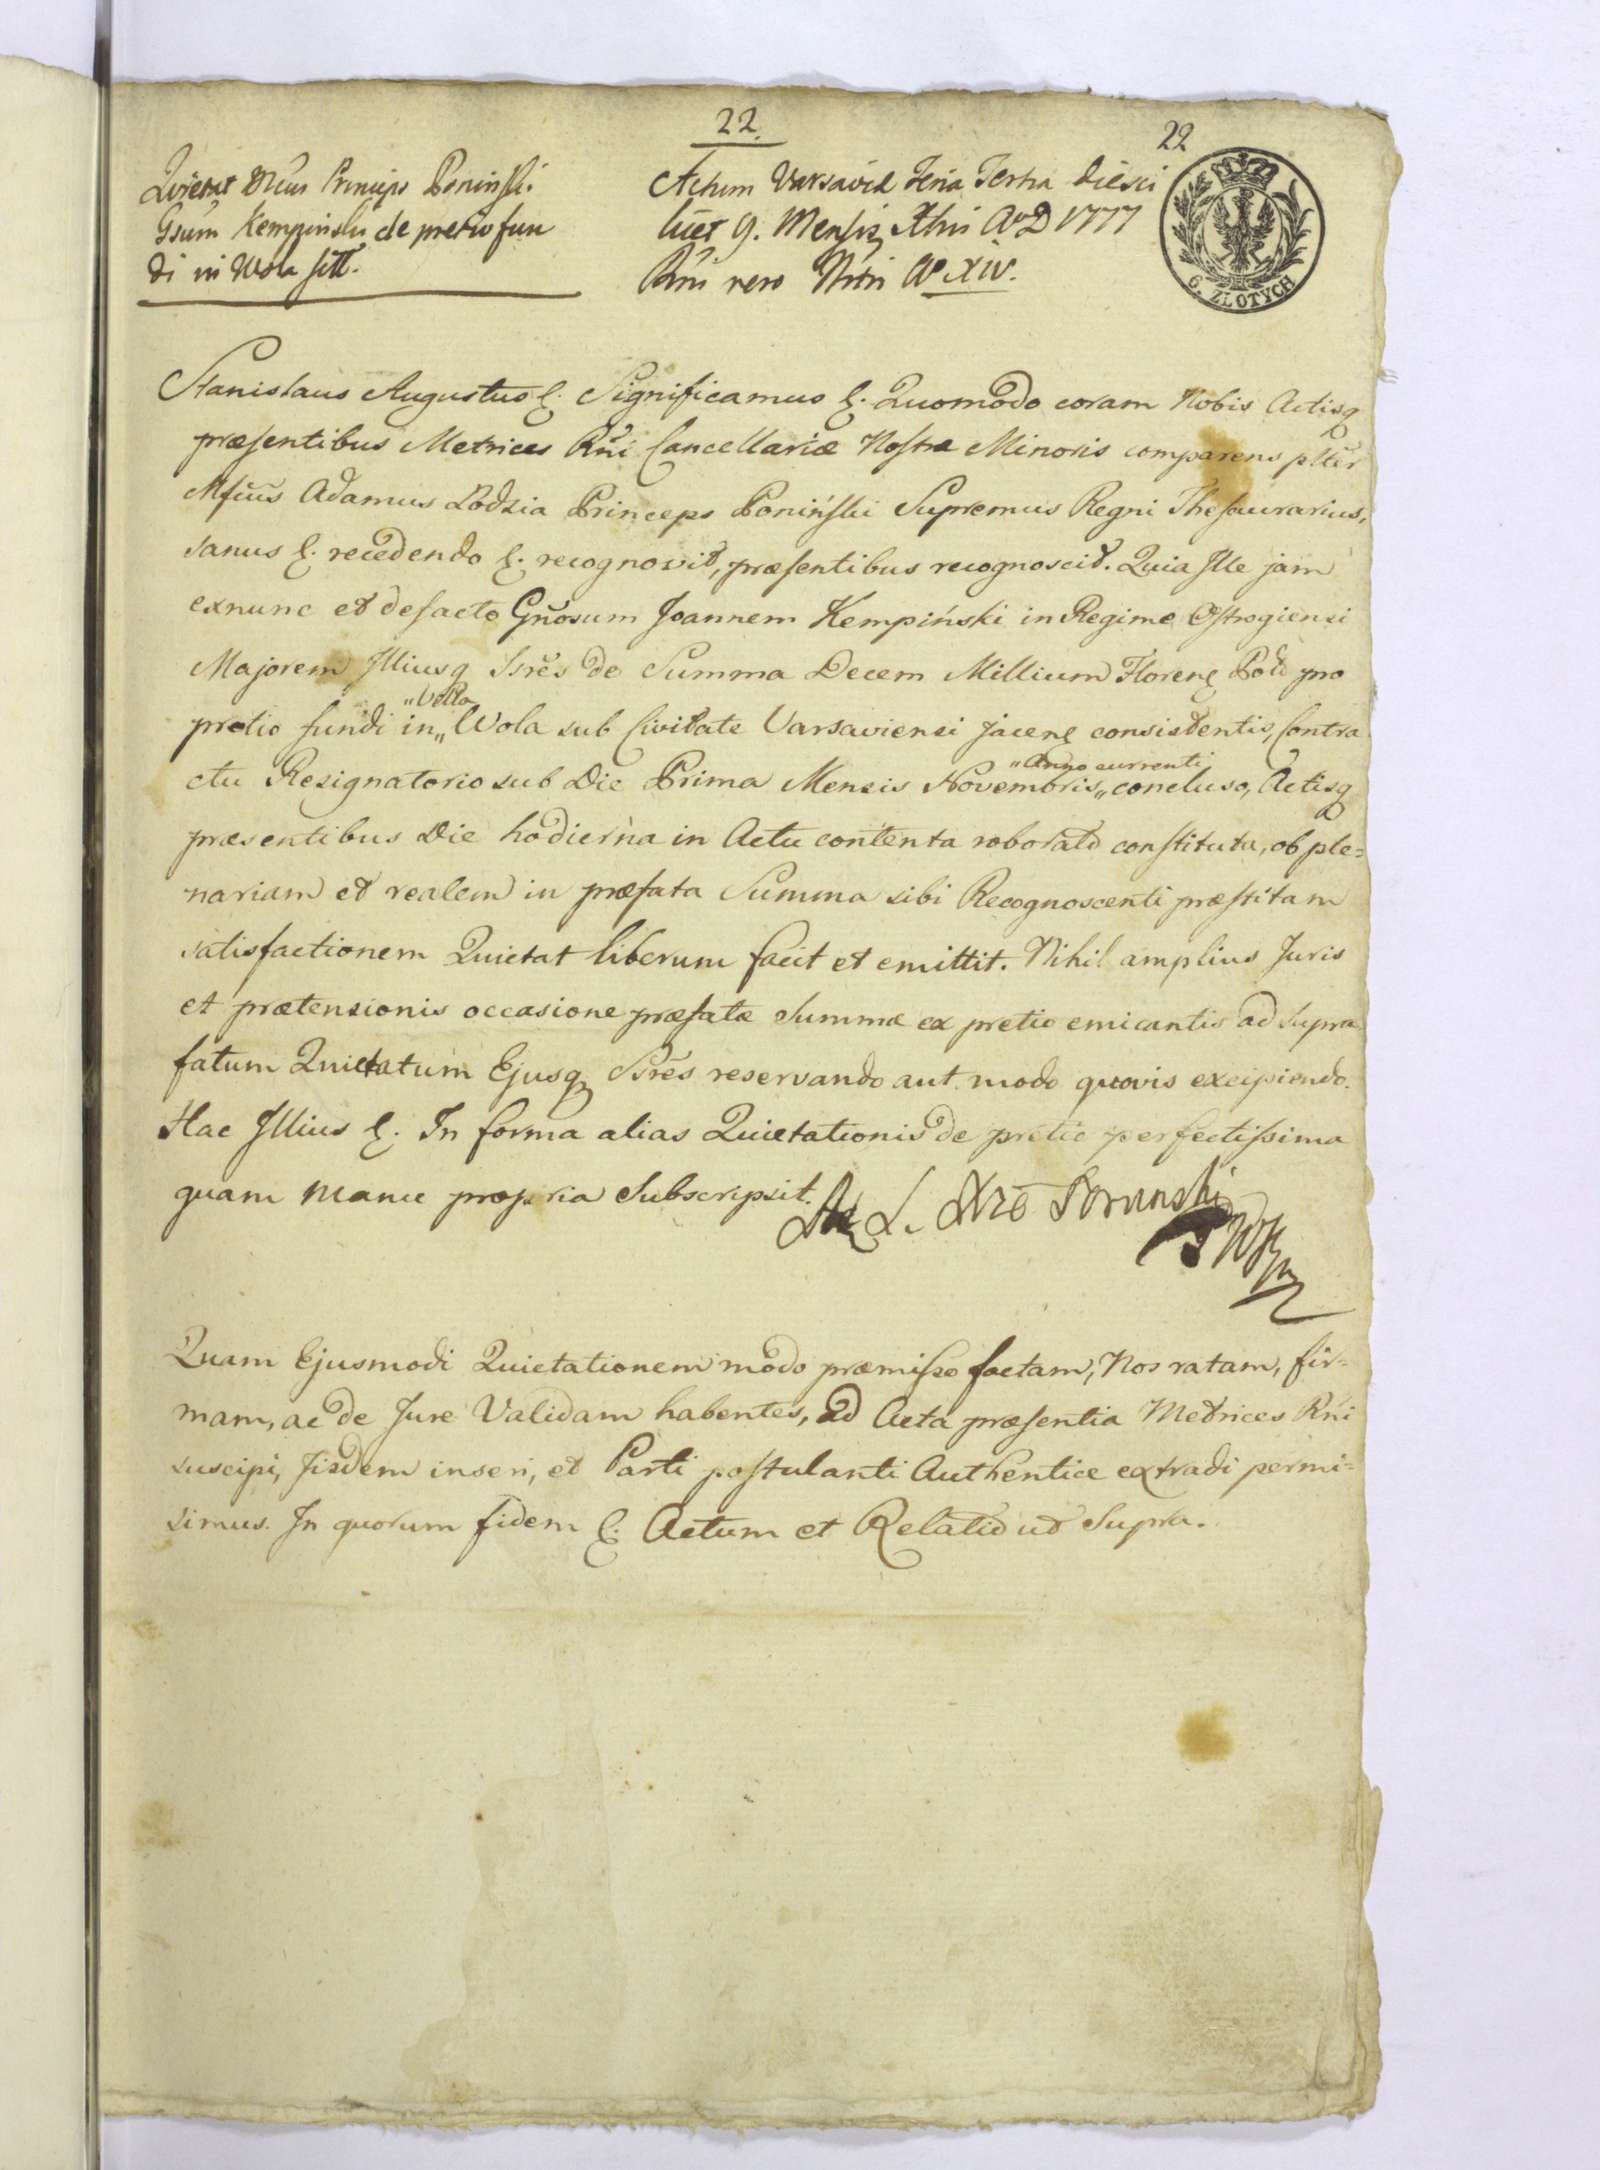 22.
22
Quietat Mcus Princeps Poninski
Gsum Kempinski de pretio fun
di in Wola sitt.
Actum Varsaviæ Feria Tertia die sci
licet 9. Mensis Xbris A°D 1777
Rni vero Nttri A° XIV.
6. ZŁOTYCH
Stanislaus Augustus &. Significamus &. Quomodo coram Nobis Actisq
præsentibus Metrices Rni Cancellariæ Nostræ Minoris comparens plter
Mficus Adamus Lodzia Princeps Poniński Supremus Regni Thesaurarius,
sanus &. recedendo &. recognovit, præsentibus recognoscit. Quia Ille jam
exnunc et defacto Gnosum Joannem Kempiński in Regime Ostrogiensi
Majorem Illiusq Ssres de Summa Decem Millium Floren Pol pro
"Villa
pretio fundi in „ Wola sub Civitate Varsaviensi jacen consistentis, Contra
"Anno currenti
ctu Resignatorio sub Die Prima Mensis Novembris „ concluso, Actisq
præsentibus Die hodierna in Actu contenta roborato constituta, ob ple=
nariam et realem in præfata Summa sibi Recognoscenti præstitam
satisfactionem Quietat liberum facit et emittit. Nihil amplius Juris
et prætensionis occasione præfatæ Summæ ex pretio emicantis ad supra
fatum Quietatum Ejusq Ssres reservando aut modo quovis excipiendo.
Hac Illius &. In forma alias Quietationis de pretio perfectissima
quam manu propria Subscripsit.
Quam Ejusmodi Quietationem modo præmisso factam, Nos ratam, fir=
mam, ac de Jure Validam habentes, ad Acta præsentia Metrices Rni
suscipi, Iisdem inseri, et Parti postulanti Authentice extradi permi=
simus. In quorum fidem &. Actum et Relatio ut Supra.